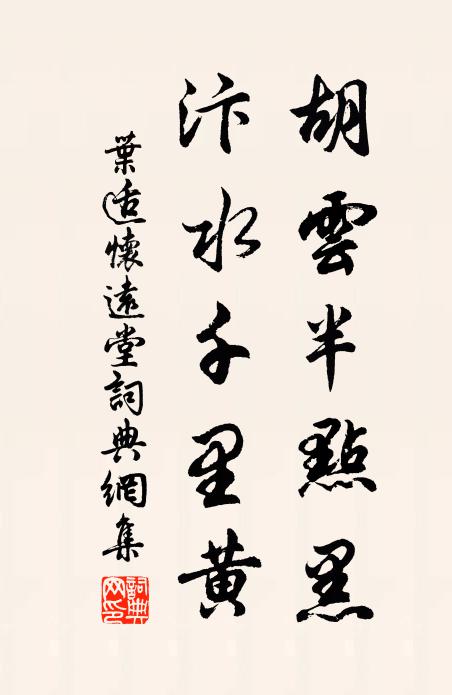 胡雲半點黑
汴水千里黃
葉适懷遠堂詞典網集
詞典網印